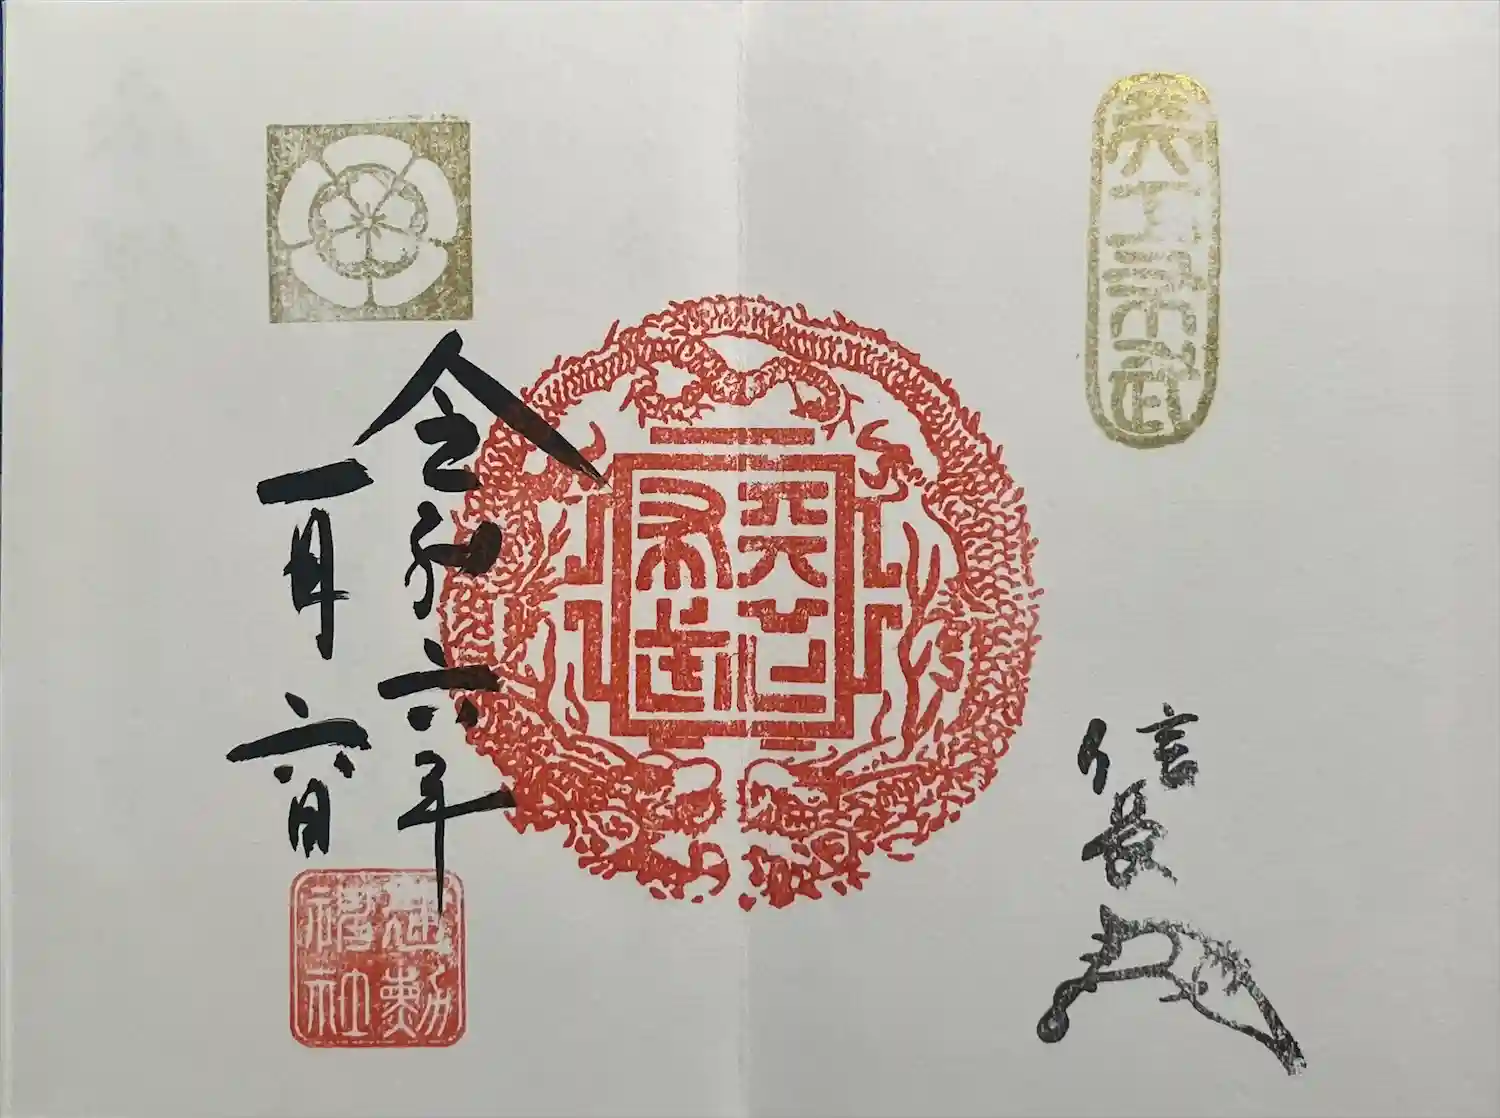 信長
天下
布武
令和六年
一月六日
建勲
神社